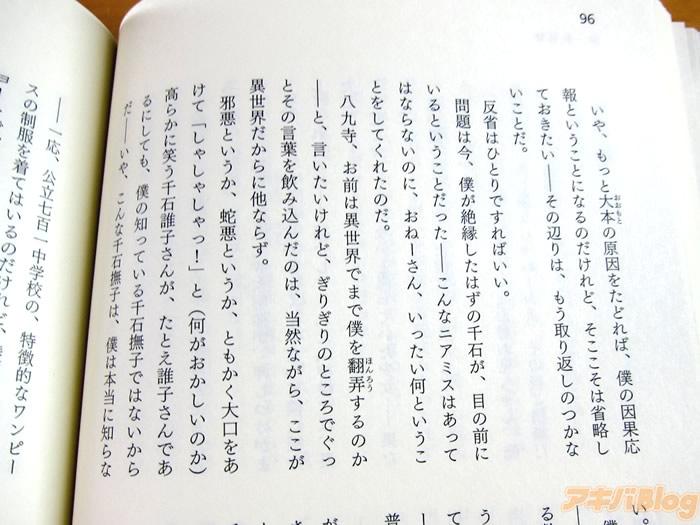 96
いや、もっと大本の原因をたどれば、僕の因果応
おおもと
報ということになるのだけれど、そここそは省略し
ておきたい――その辺りは、もう取り返しのつかな
いことだ。
反省はひとりですればいい。
問題は今、僕が絶縁したはずの千石が、目の前に
いるということだった――こんなニアミスはあって
はならないのに、おねーさん、いったい何というこ
とをしてくれたのだ。
八九寺、お前は異世界でまで僕を翻弄するのか
ほんろう
――と、言いたいけれど、ぎりぎりのところでぐっ
とその言葉を飲み込んだのは、当然ながら、ここが
異世界だからに他ならず。
邪悪というか、蛇悪というか、ともかく大口をあ
けて「しゃしゃしゃっ！」と（何がおかしいのか）
高らかに笑う千石誰子さんが、たとえ誰子さんであ
るにしても、僕の知っている千石撫子ではないから
だ――いや、こんな千石撫子は、僕は本当に知らな
い。
――一応、公立七百一中学校の、特徴的なワンピー
スの制服を着てはいるのだけれど、
アキバBlog